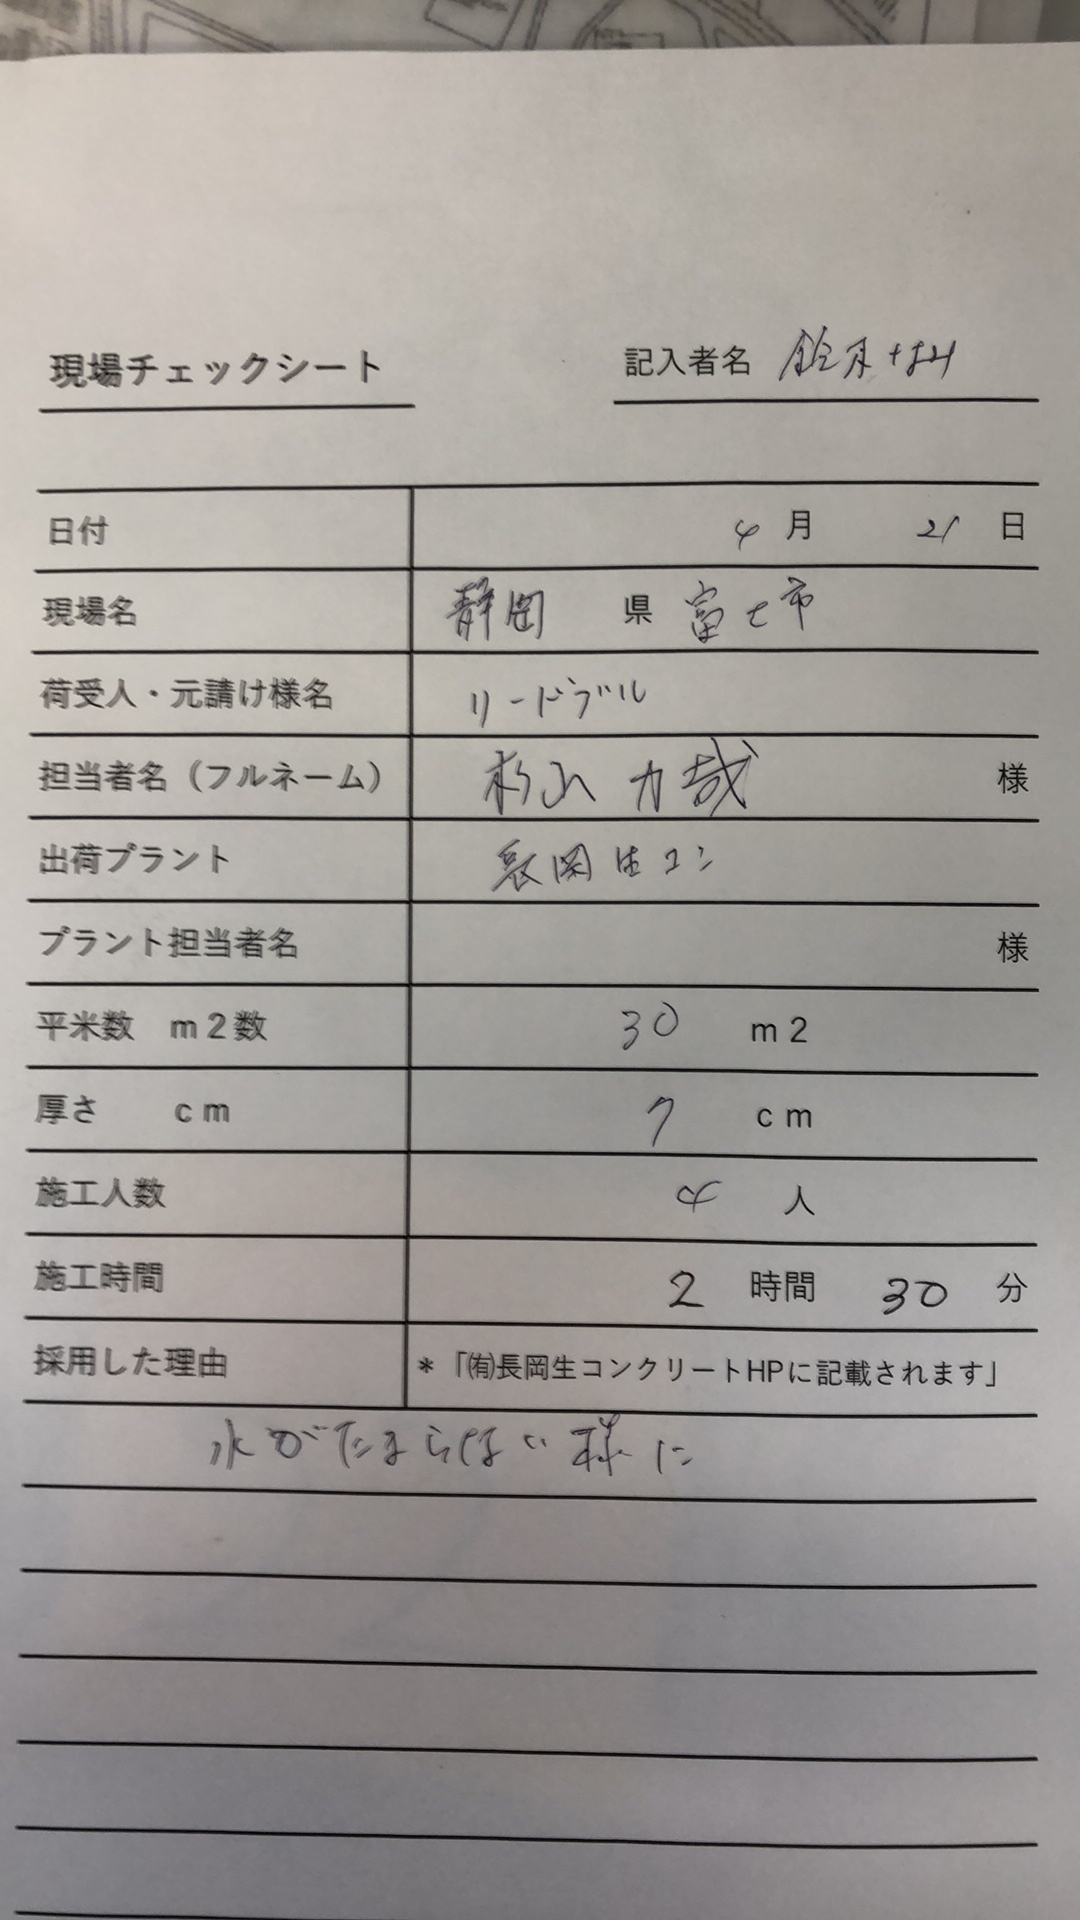 現場チェックシート 記入者名
日付 4月 21日
現場名 静岡 県 富士市
荷受人・元請け様名 リードブル
担当者名（フルネーム） 杉山 力哉 様
出荷プラント 長岡生コン
プラント担当者名 様
平米数 m2数 30 m2
厚さ cm 7 cm
施工人数 4 人
施工時間 2 時間 30 分
採用した理由 *「㈲長岡生コンクリートHPに記載されます」
水がたまらない様に